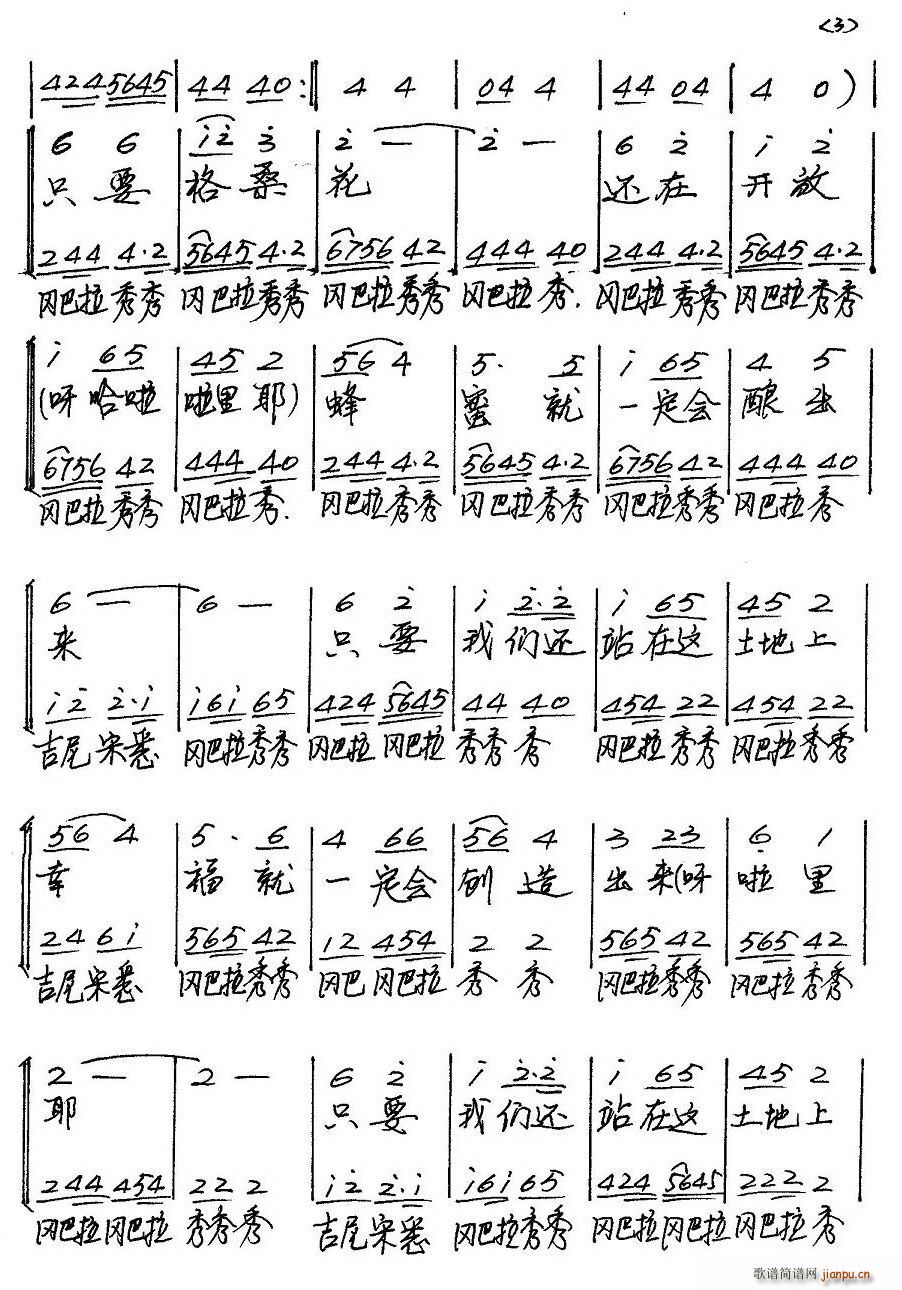 <3>
424 5645 | 44 40 :‖ 4 4 | 04 4 | 44 04 | 4 0 ) |
6 6 | i̇2̇ 3̇ | 2̇ — | 2̇ — | 6 2̇ | i 2̇
只要 格桑 花 还在 开放
244 4·2 | 5645 4·2 | 6756 42 | 444 40 | 244 4·2 | 5645 4·2
冈巴拉秀秀 冈巴拉秀秀 冈巴拉秀秀 冈巴拉秀. 冈巴拉秀秀 冈巴拉秀秀
i 65 | 45 2 | 56 4 | 5· 5 | i 65 | 4 5
(呀哈啦 啦里耶) 蜂 蜜就 一定会 酿出
6756 42 | 444 40 | 244 4·2 | 5645 4·2 | 6756 42 | 444 40
冈巴拉秀秀 冈巴拉秀. 冈巴拉秀秀 冈巴拉秀秀 冈巴拉秀秀 冈巴拉秀
6 — | 6 — | 6 2̇ | i 2̇·2̇ | i 65 | 45 2
来 只要 我们还 站在这 土地上
i2̇ 2̇·i | i6i 65 | 424 5645 | 44 40 | 454 22 | 454 22
吉尾宋 冈巴拉秀秀 冈巴拉 冈巴拉 秀秀秀 冈巴拉秀秀 冈巴拉秀秀
56 4 | 5· 6 | 4 66 | 56 4 | 3 23 | 6̣ 1
幸 福就 一定会 创造 出来(呀 啦里
24 6i | 565 42 | 12 454 | 2 2 | 565 42 | 565 42
吉尾宋 冈巴拉秀秀 冈巴 冈巴拉 秀秀 冈巴拉秀秀 冈巴拉秀秀
2 — | 2 — | 6 2̇ | i 2̇·2̇ | i 65 | 45 2
耶 只要 我们还 站在这 土地上
244 454 | 22 2 | i2̇ 2̇·i | i6i 65 | 424 5645 | 222 2
冈巴拉冈巴拉 秀秀秀 吉尾宋 冈巴拉秀秀 冈巴拉冈巴拉 冈巴拉秀
歌谱简谱网
jianpu.cn